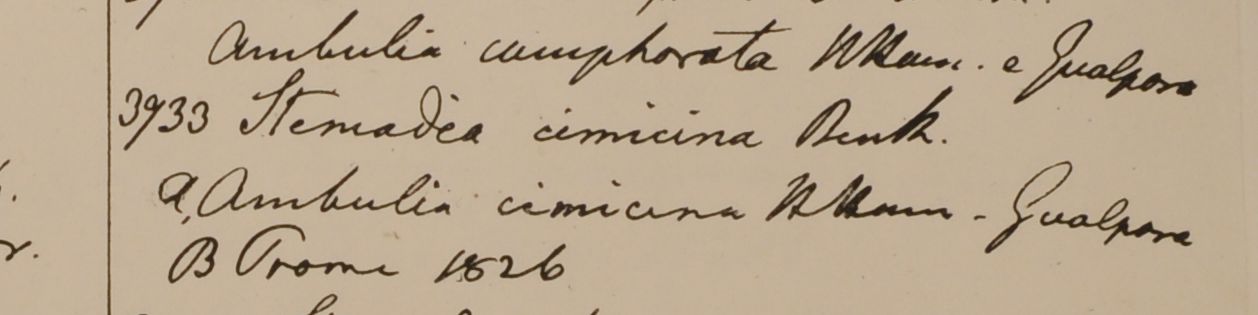 Ambulia camphorata HHam. e Gualpora
3933 Stemadia cimicina Benth.
a, Ambulia cimicina HHam - Gualpora
B Prome 1826